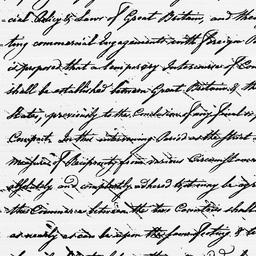 cial Policy & Laws of Great Britain, and the
ting commercial Engagements with Foreign
is proposed that a temporary Intercourse of Com
shall be established between Great Britain & the
States, previously to the Conclusion of any final
Compact. In this intervening Period as the strict
measure of Reciprocity from various Circumstances
absolutely and completely adhered to it may be agr
the Commerce between the two Countries shall
as nearly as can be upon the same footing &